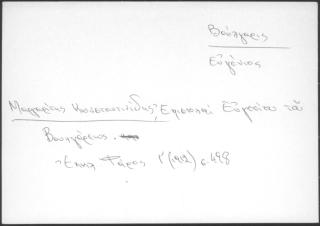 Βούλγαρις
Εὐγένιος
Μαργαρίτης Κωνσταντινίδης, Ἐπιστολαὶ Εὐγενίου τοῦ
Βουλγάρεως.
Ἐκκλ Φάρος (1912) σ. 498